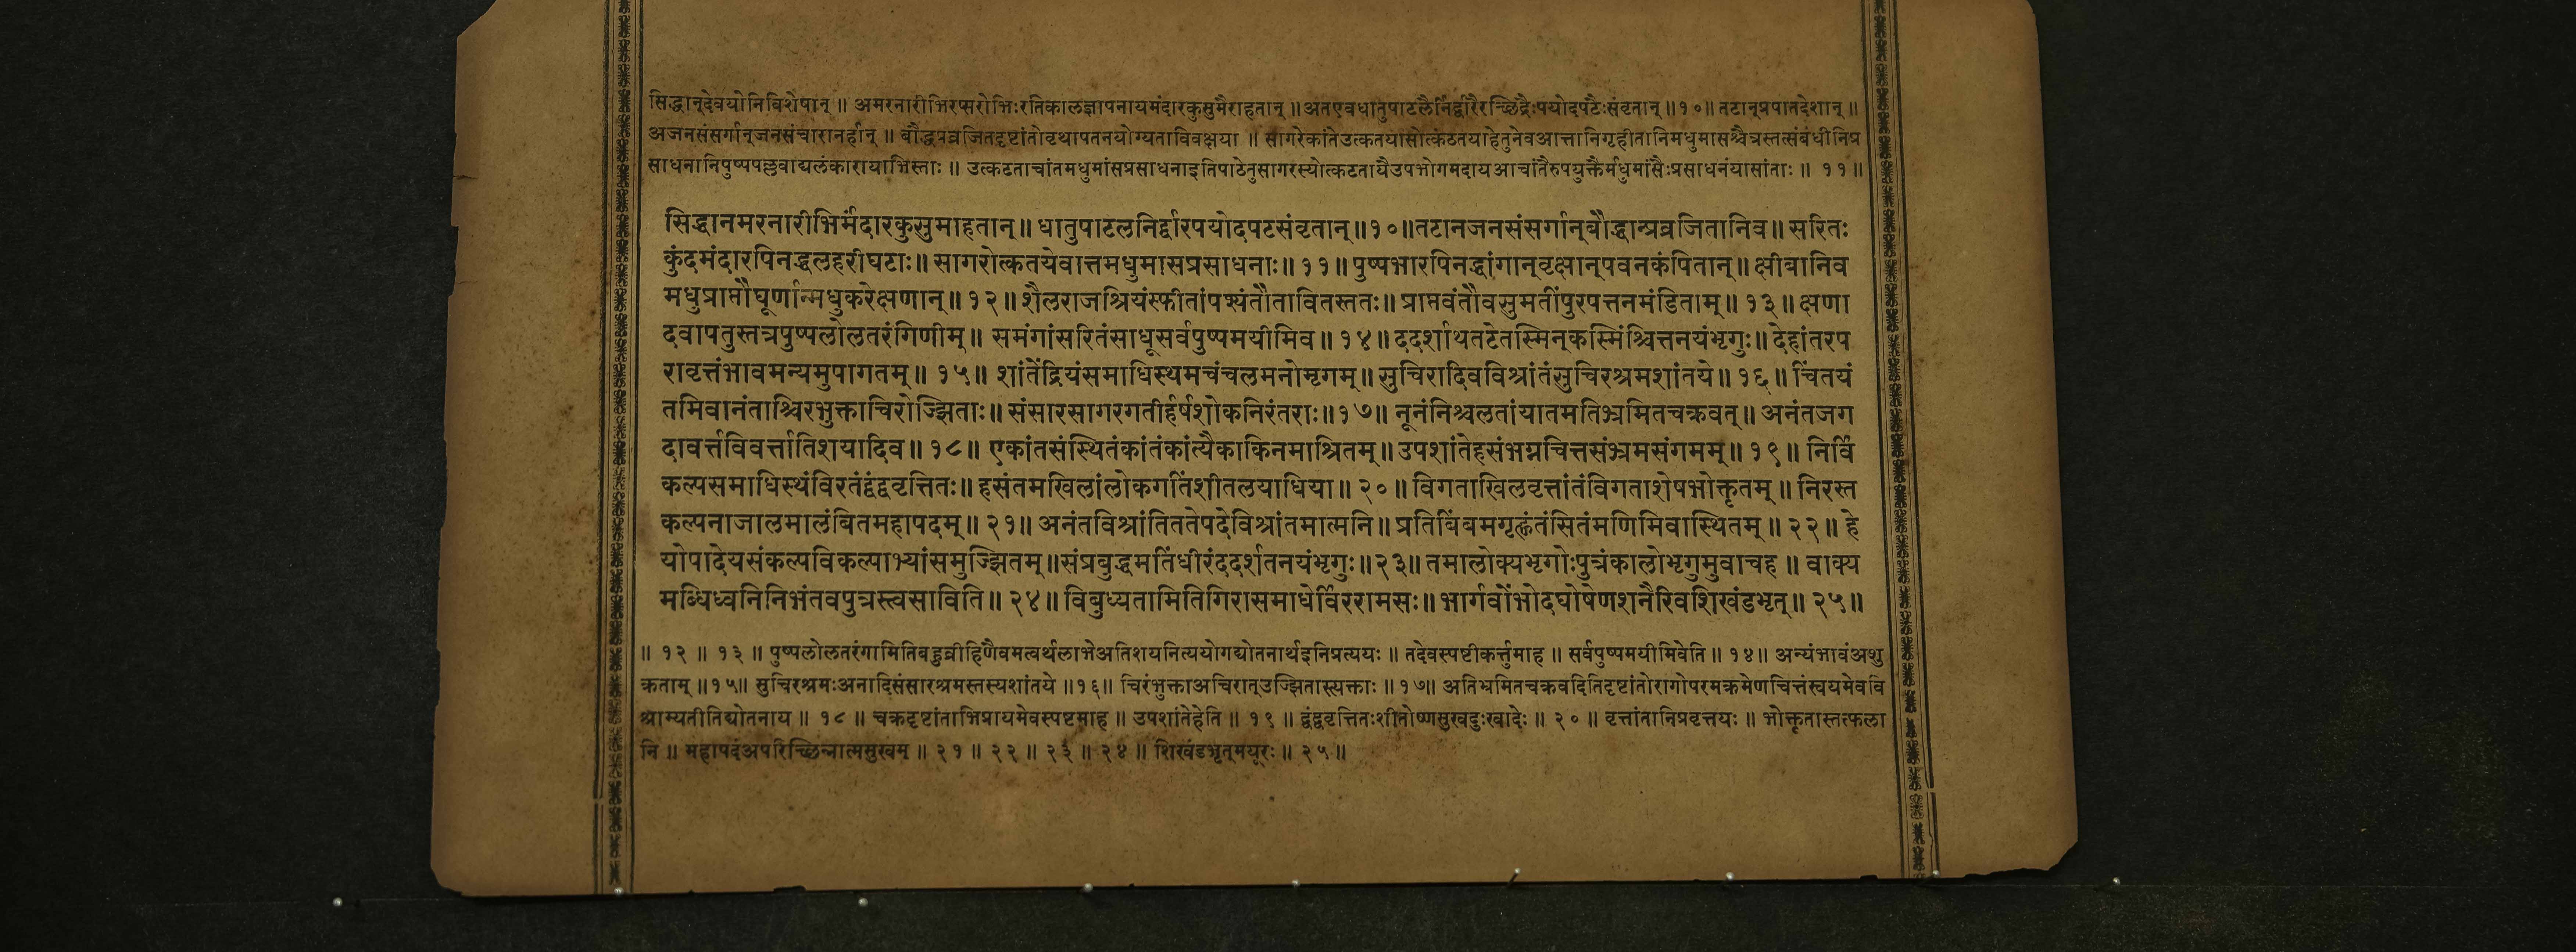 सिद्धान्देवयोनिविशेषान् ॥ अमरनारीभिरप्सरोभिःरतिकालज्ञापनायमंदारकुसुमैराहतान् ॥ अतएवधातुपाटलैर्निर्द्वारैरच्छिद्रैःपयोदपटैःसंवृतान् ॥ १० ॥ तटान्प्रपातदेशान् ॥
अजनसंसर्गान्जनसंचारानर्हान् ॥ बौद्धप्रव्रजितदृष्टांतोवृथापतनयोग्यताविवक्षया ॥ सागरेकांतेउत्कतयासोत्कंठतयाहेतुनेवआत्तानिगृहीतानिमधुमासश्चैत्रस्तत्संबंधीनिप्र
साधनानिपुष्पपल्लवाद्यलंकारायाभिस्ताः ॥ उत्कटताचांतमधुमांसप्रसाधनाइतिपाठेतुसागरस्योत्कटतायैउपभोगमदायआचांतैरुपयुक्तैर्मधुमांसैःप्रसाधनंयासांताः ॥ ११ ॥
सिद्धानमरनारीभिर्मंदारकुसुमाहतान् ॥ धातुपाटलनिर्द्वारपयोदपटसंवृतान् ॥ १० ॥ तटानजनसंसर्गान्बौद्धान्प्रव्रजितानिव ॥ सरितः
कुंदमंदारपिनद्धलहरीघटाः ॥ सागरोत्कतयेवात्तमधुमासप्रसाधनाः ॥ ११ ॥ पुष्पभारपिनद्धांगान्वृक्षान्पवनकंपितान् ॥ क्षीबानिव
मधुप्राप्तौघूर्णान्मधुकरेक्षणान् ॥ १२ ॥ शैलराजश्रियंस्फीतांपश्यंतौतावितस्ततः ॥ प्राप्तवंतौवसुमतींपुरपत्तनमंडिताम् ॥ १३ ॥ क्षणा
दवापतुस्तत्रपुष्पलोलतरंगिणीम् ॥ समंगांसरितंसाधूसर्वपुष्पमयीमिव ॥ १४ ॥ ददर्शाथतटेतस्मिन्कस्मिंश्चित्तनयंभृगुः ॥ देहांतरप
रावृत्तंभावमन्यमुपागतम् ॥ १५ ॥ शांतेंद्रियंसमाधिस्थमचंचलमनोमृगम् ॥ सुचिरादिवविश्रांतंसुचिरश्रमशांतये ॥ १६ ॥ चिंतयं
तमिवानंताश्चिरभुक्ताचिरोज्झिताः ॥ संसारसागरगतीर्हर्षशोकनिरंतराः ॥ १७ ॥ नूनंनिश्चलतांयातमतिभ्रमितचक्रवत् ॥ अनंतजग
दावर्त्तविवर्त्तातिशयादिव ॥ १८ ॥ एकांतसंस्थितंकांतंकांत्यैकाकिनमाश्रितम् ॥ उपशांतेहसंभग्नचित्तसंभ्रमसंगमम् ॥ १९ ॥ निर्वि
कल्पसमाधिस्थंविरतंद्वंद्ववृत्तितः ॥ हसंतमखिलांलोकगतिंशीतलयाधिया ॥ २० ॥ विगताखिलवृत्तांतंविगताशेषभोक्तृतम् ॥ निरस्त
कल्पनाजालमालंबितमहापदम् ॥ २१ ॥ अनंतविश्रांतिततेपदेविश्रांतमात्मनि ॥ प्रतिबिंबमगृह्णंतंसितंमणिमिवास्थितम् ॥ २२ ॥ हे
योपादेयसंकल्पविकल्पाभ्यांसमुज्झितम् ॥ संप्रबुद्धमतिंधीरंददर्शतनयंभृगुः ॥ २३ ॥ तमालोक्यभृगोःपुत्रंकालोभृगुमुवाचह ॥ वाक्य
मब्धिध्वनिनिभंतवपुत्रस्त्वसाविति ॥ २४ ॥ विबुध्यतामितिगिरासमाधेर्विररामसः ॥ भार्गवोंभोदघोषेणशनैरिवशिखंडभृत् ॥ २५ ॥
॥ १२ ॥ १३ ॥ पुष्पलोलतरंगामितिबहुव्रीहिणैवमत्वर्थलाभेअतिशयनित्ययोगद्योतनार्थइनिप्रत्ययः ॥ तदेवस्पष्टीकर्त्तुमाह ॥ सर्वपुष्पमयीमिवेति ॥ १४ ॥ अन्यंभावंअशु
क्रताम् ॥ १५ ॥ सुचिरश्रमःअनादिसंसारश्रमस्तस्यशांतये ॥ १६ ॥ चिरंभुक्ताअचिरात्उज्झितास्त्यक्ताः ॥ १७ ॥ अतिभ्रमितचक्रवदितिदृष्टांतोरागोपरमक्रमेणचित्तंस्वयमेववि
श्राम्यतीतिद्योतनाय ॥ १८ ॥ चक्रदृष्टांताभिप्रायमेवस्पष्टमाह ॥ उपशांतेहेति ॥ १९ ॥ द्वंद्ववृत्तितःशीतोष्णसुखदुःखादेः ॥ २० ॥ वृत्तांतानिप्रवृत्तयः ॥ भोक्तृतास्तत्फला
नि ॥ महापदंअपरिच्छिन्नात्मसुखम् ॥ २१ ॥ २२ ॥ २३ ॥ २४ ॥ शिखंडभृत्मयूरः ॥ २५ ॥